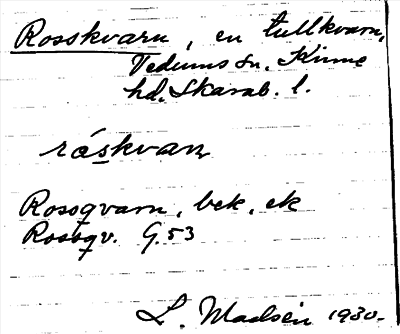 Rosskvarn, en tullkvarn,
Vedums sn. Kinne
hd. Skarab. l.
ráskvarn
Rossqvarn, bek. ek
Rossqv. G. 53
L. Madsén 1930.